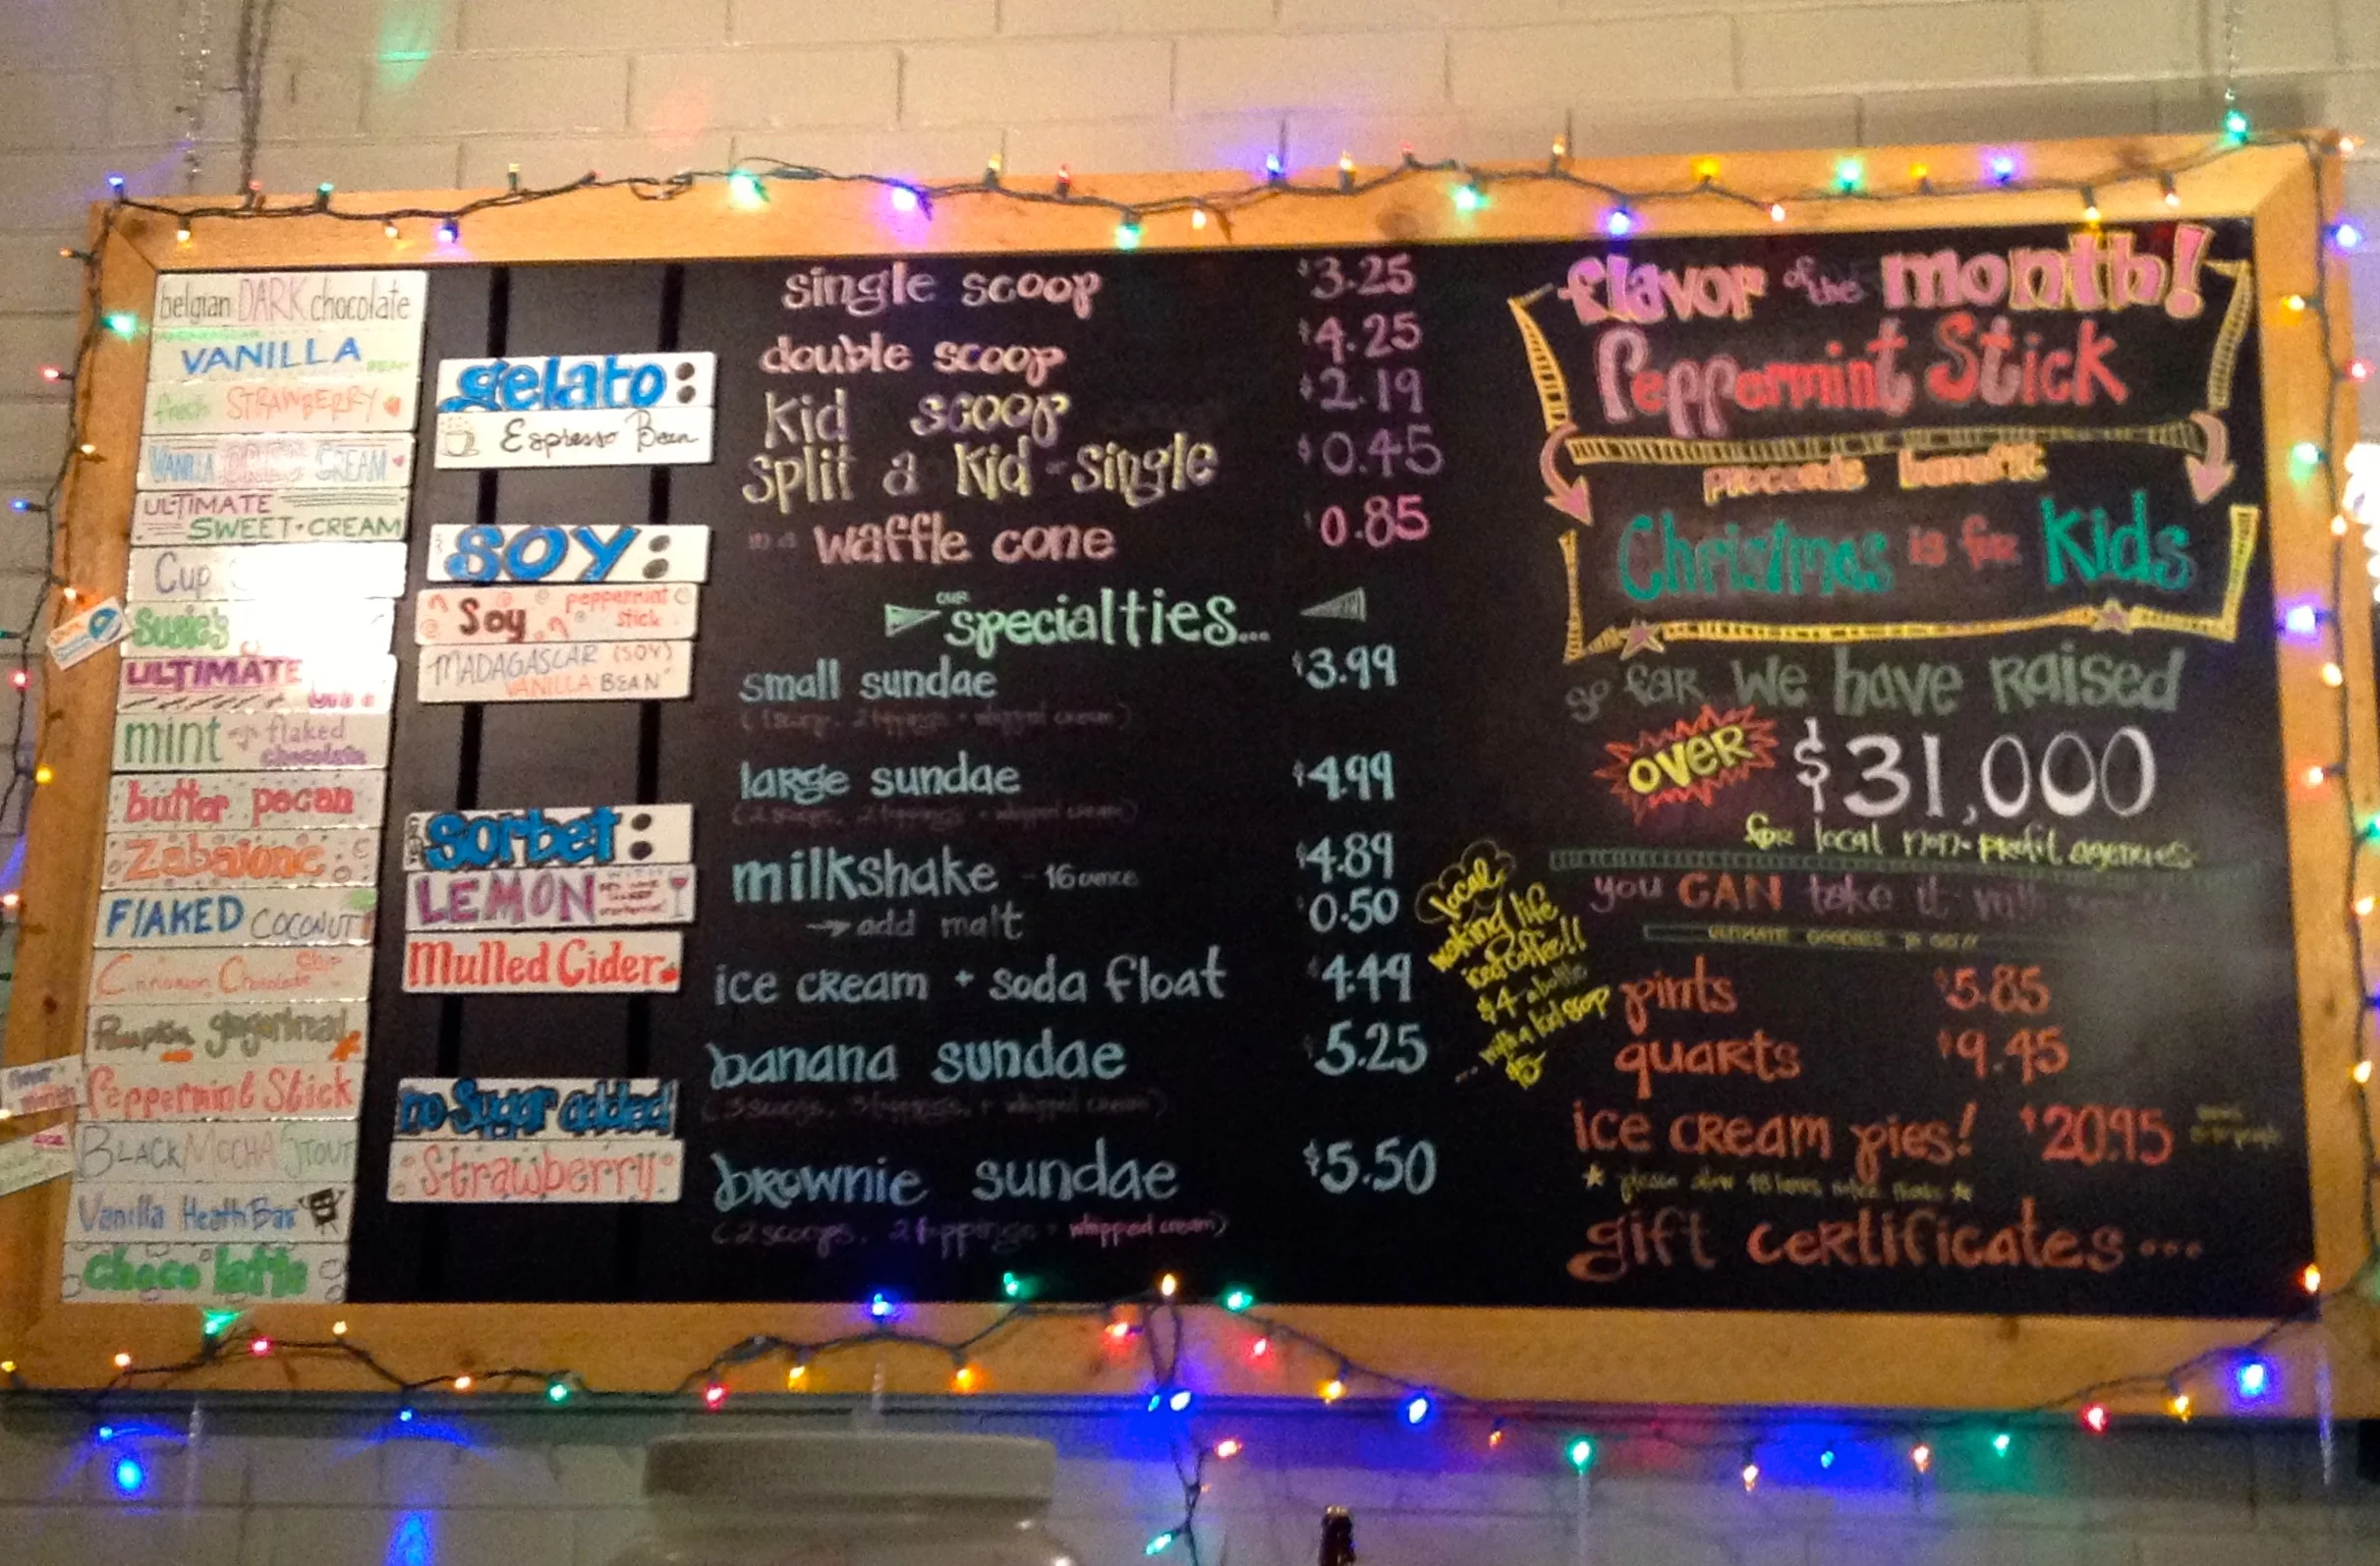 belgian DARK chocolate
VANILLA BEAN
fresh STRAWBERRY
VANILLA CREAM
ULTIMATE
SWEET-CREAM
Cup
Susie's
ULTIMATE
mint flaked
chocolate
butter pecan
Zabaione
FLAKED COCONUT
Cinnamon Chocolate Chip
Pumpkin gingersnap
Peppermint Stick
BLACK MOCHA STOUT
Vanilla Heath Bar
Choco latte
gelato:
Espresso Bean
SOY:
Soy peppermint
stick
MADAGASCAR (SOY)
VANILLA BEAN
Sorbet:
LEMON
Mulled Cider
no Sugar added
Strawberry
single scoop $3.25
double scoop $4.25
Kid scoop $2.19
split a Kid-single $0.45
in a waffle cone 0.85
our
specialties...
small sundae $3.99
(1 scoop, 2 toppings + whipped cream)
large sundae $4.99
(2 scoops, 2 toppings + whipped cream)
milkshake - 16 ounce $4.89
add malt 0.50
ice cream + soda float 4.49
banana sundae 5.25
(3 scoops, 3 toppings, + whipped cream)
brownie sundae $5.50
(2 scoops, 2 toppings + whipped cream)
local
making life
iced coffee!!
$4 a bottle
... with a kid scoop
$5
flavor of the month!
Peppermint Stick
proceeds benefit
Christmas is for Kids
so far we have Raised
OVER $31,000
for local non-profit agencies
you CAN take it with
ULTIMATE GOODIES to go!!
pints $5.85
quarts $9.45
ice cream pies! $20.95
gift certificates...